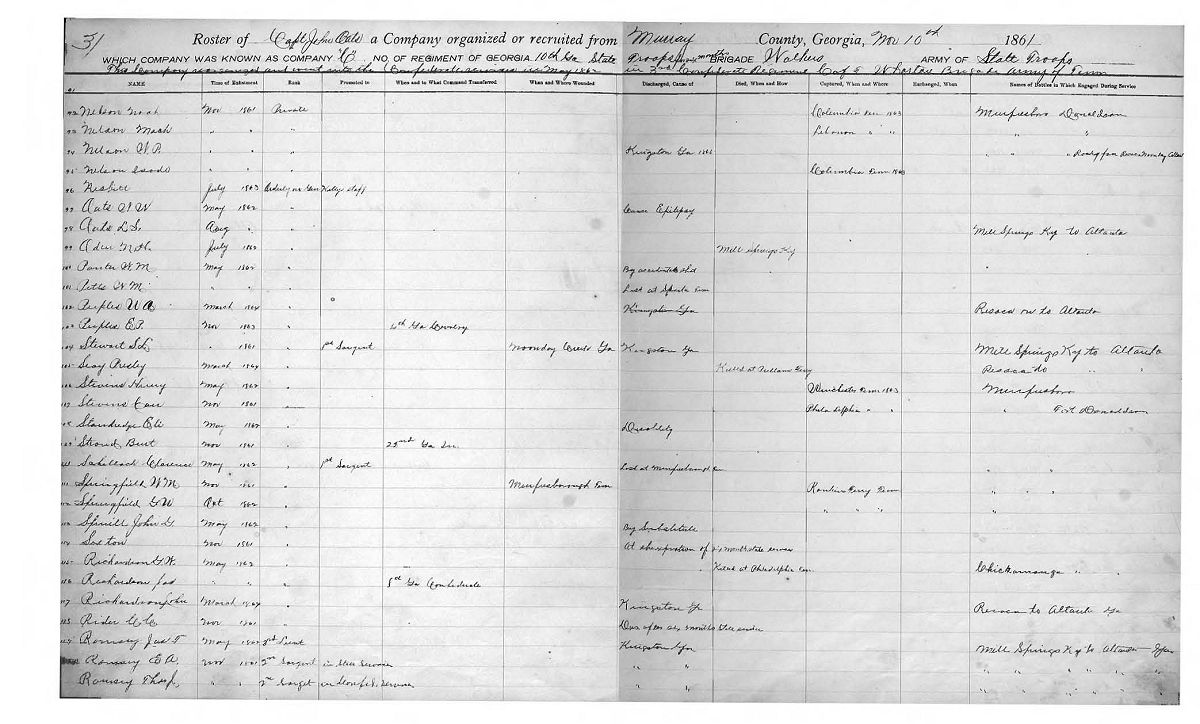 31 Roster of Capt John Oats a Company organized or recruited from Murray County, Georgia, Nov 10th 1861
WHICH COMPANY WAS KNOWN AS COMPANY "C" NO. OF REGIMENT OF GEORGIA. 10th Ga State Troops months BRIGADE Walkers ARMY OF State Troops
This Company reorganized and went into the Confederate service in May 1862 in Confederate Regiment Ga Whartons Brigade Army of Tenn
NAME Time of Enlistment Rank Promoted to When and to What Command Transferred When and Where Wounded Discharged, Cause of Died, When and How Captured, When and Where Exchanged, When Names of Battles in Which Engaged During Service
91
92 Nelson Noah Nov 1861 Private Columbia Tenn 1863 Murfresboro Donaldson
93 Nelson Mack " " " Lebanon " " " "
94 Nelson W.P. " " " Kingston Ga 1865 " "
95 Nelson " " " Columbia Tenn 1863
96 Nesbett July 1863 Orderly on Gen Kellys staff
97 Oats W May 1862 " Cause Epilepsy
98 Oats L.S. Aug " " Mill Springs Ky to Altanta
99 July 1862 " Mill Springs Ky
100 Panter W.M May 1862 " By accidental shot
101 Petts W M " " " Lost at Sparta Tenn
102 Peeples W A March 1864 " Kingston Ga Resaca on to Altanta
103 Peeples E.P. Nov 1863 " 6th Ga Cavalry
104 Stewart S.L. " 1861 " 1st Sargent Noonday Creek Ga Kingston Ga Mill Springs Ky to Altanta
105 Seay Presley March 1864 " Killed at Pullam Ferry Resaca to " "
106 Stevens Henry May 1862 " Winchester Tenn 1863 Murfresboro
107 Stevens Carr Nov 1861 Philadelphia " " " Fort Donaldson
108 Standredge Eli May 1862 " Disability
109 Stroud Burt Nov 1861 " 23rd Ga Inf.
110 Clarence May 1862 " 1st Sargent Lost at Murfresborough Tenn " "
111 Springfield W M Nov 1861 " Murfresborough Tenn Rankins Ferry Tenn " " "
112 Springfield G W Oct 1862 " " " " " "
113 John G May 1862 " By Substitute
114 Saxton Nov 1861 " At the expiration of six months state service
115 Richardson G.W. May 1862 " " Killed at Philadelphia Tenn Chickamauga " "
116 Richardson Jas " " " 8th Ga Confederate
117 Richardson John March 1864 " Kingston Ga Resaca to Altanta Ga
118 Rider C C Nov 1861 " Dis after six months state service
119 Ramsey Jas T May 1862 3rd Lieut Kingston Ga Mill Springs Ky to Altanta Ga
120 Ramsey E A. Nov 1861 2nd Sargent in State Service " " " " " " "
Ramsey Thos " " 2nd Sarget in Confed. Service " " " " " " "